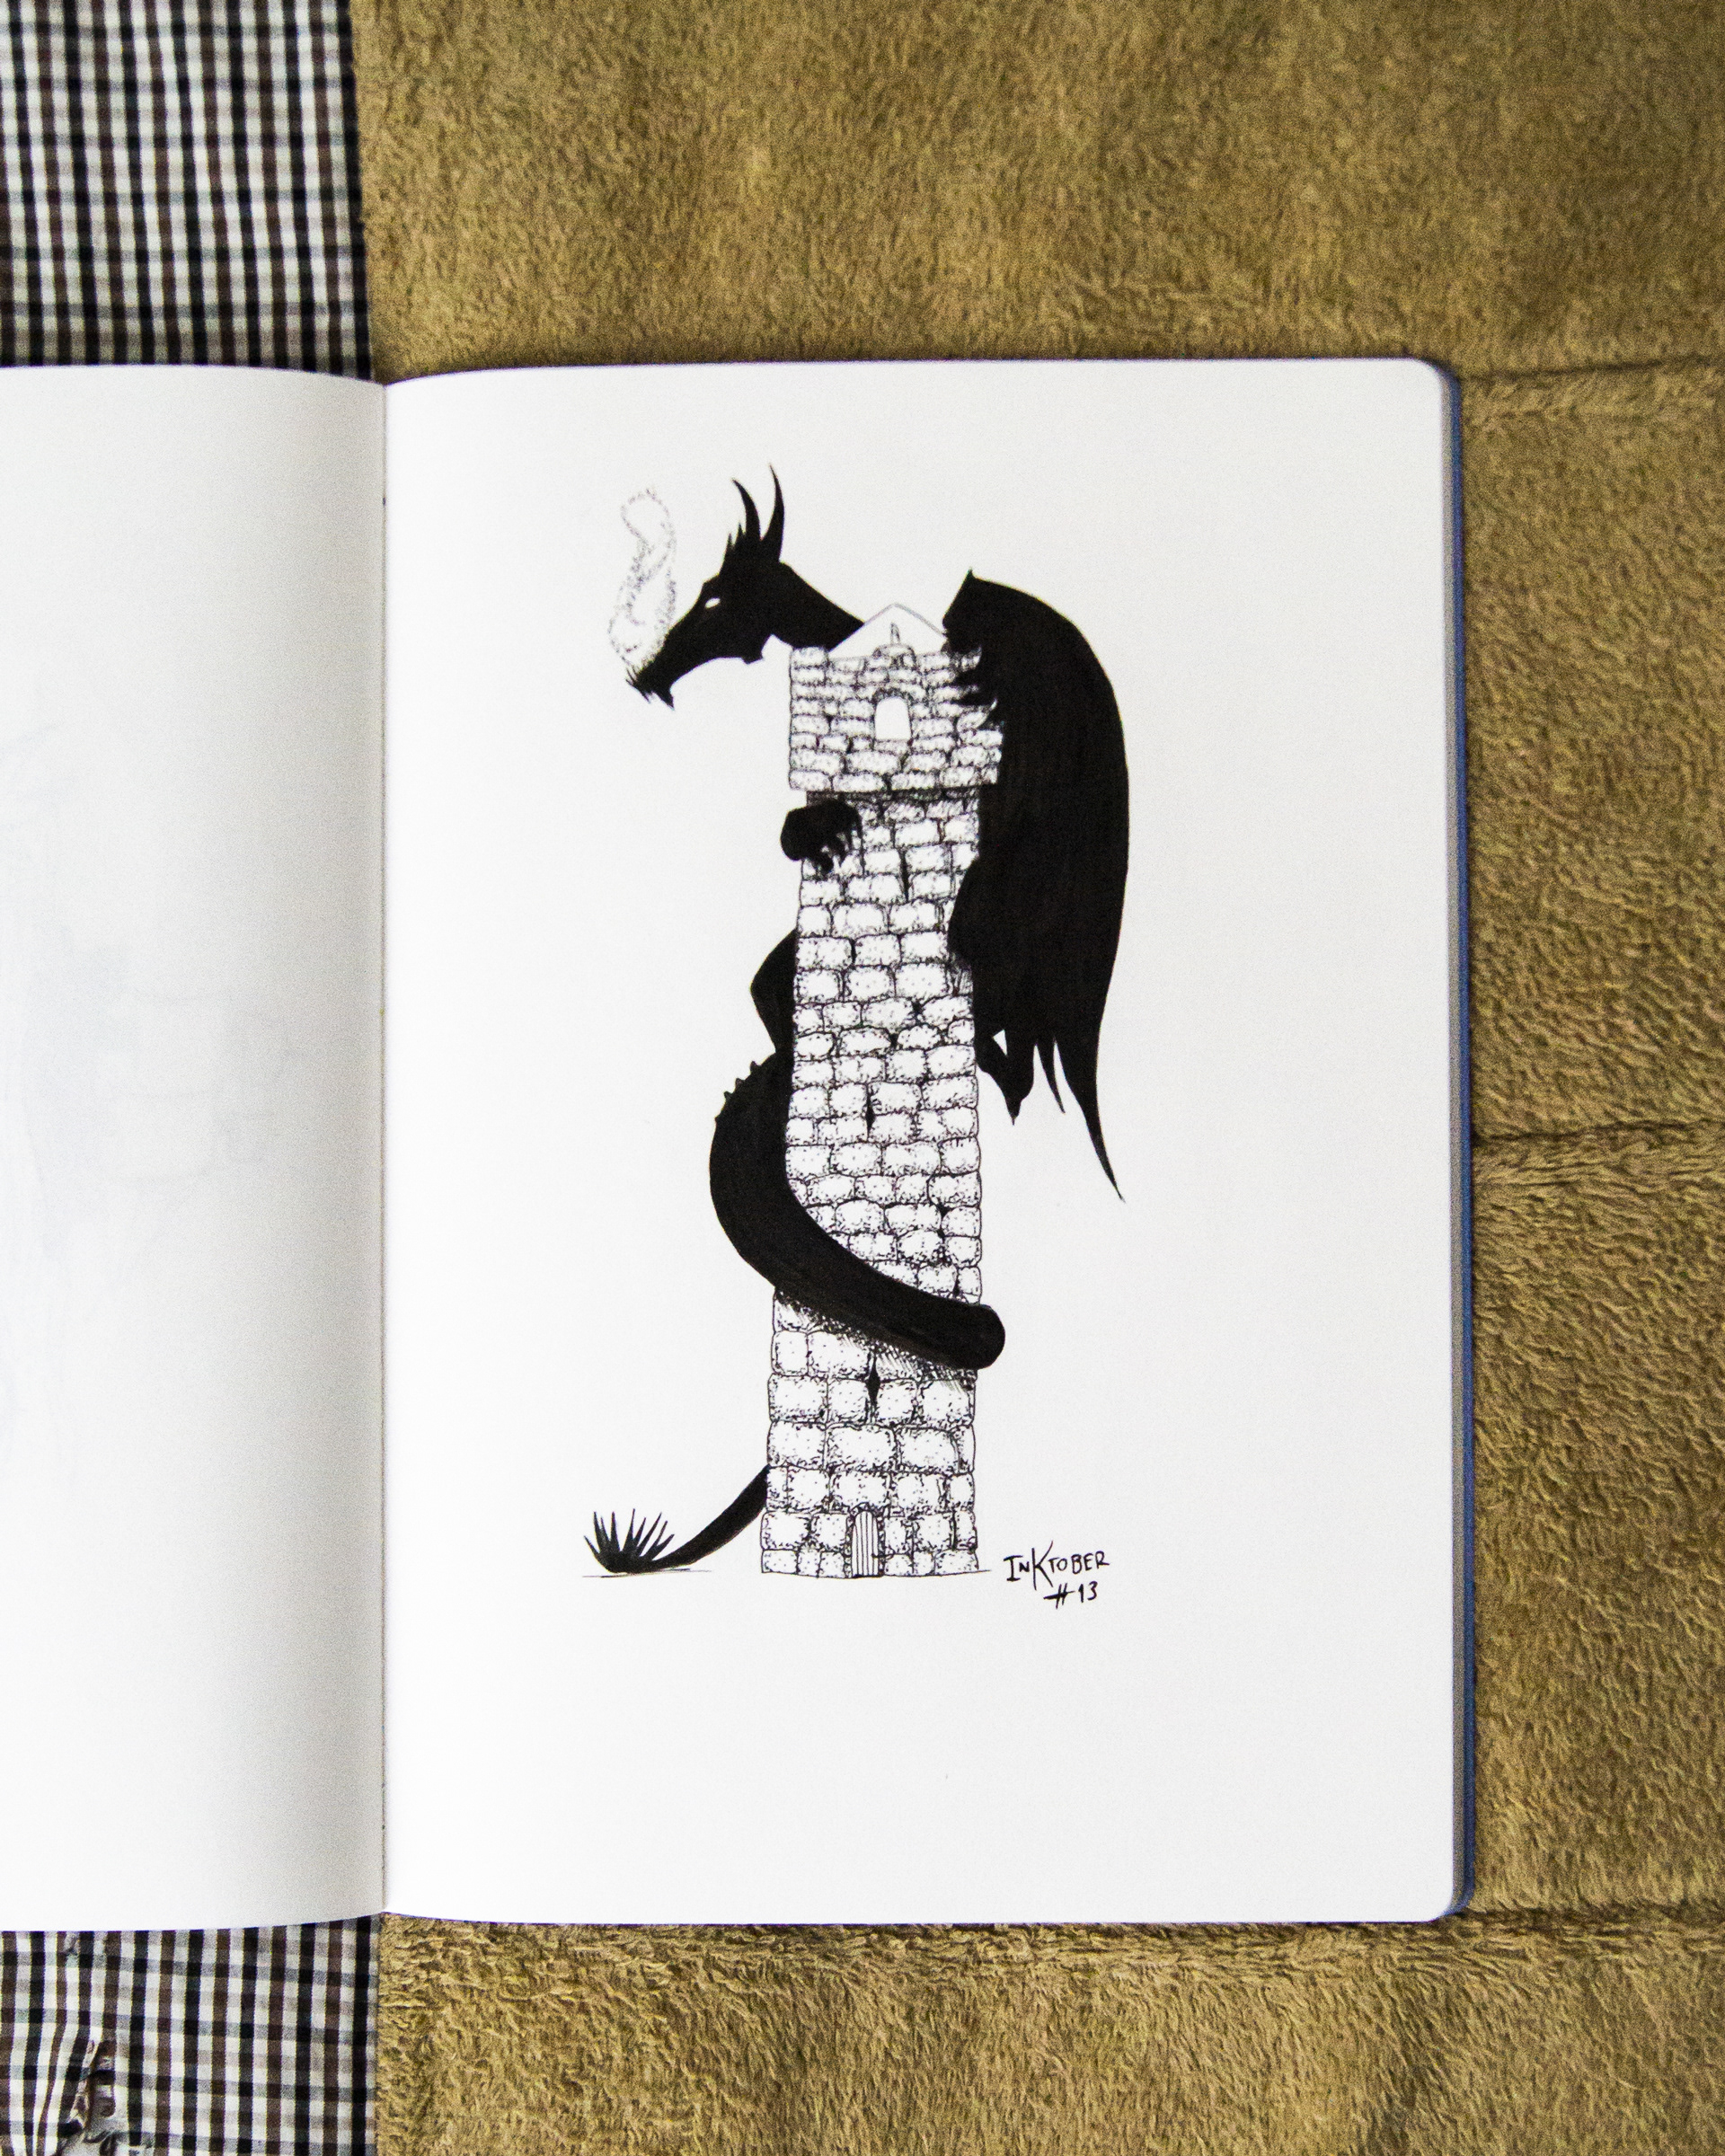 INKTOBER
#13